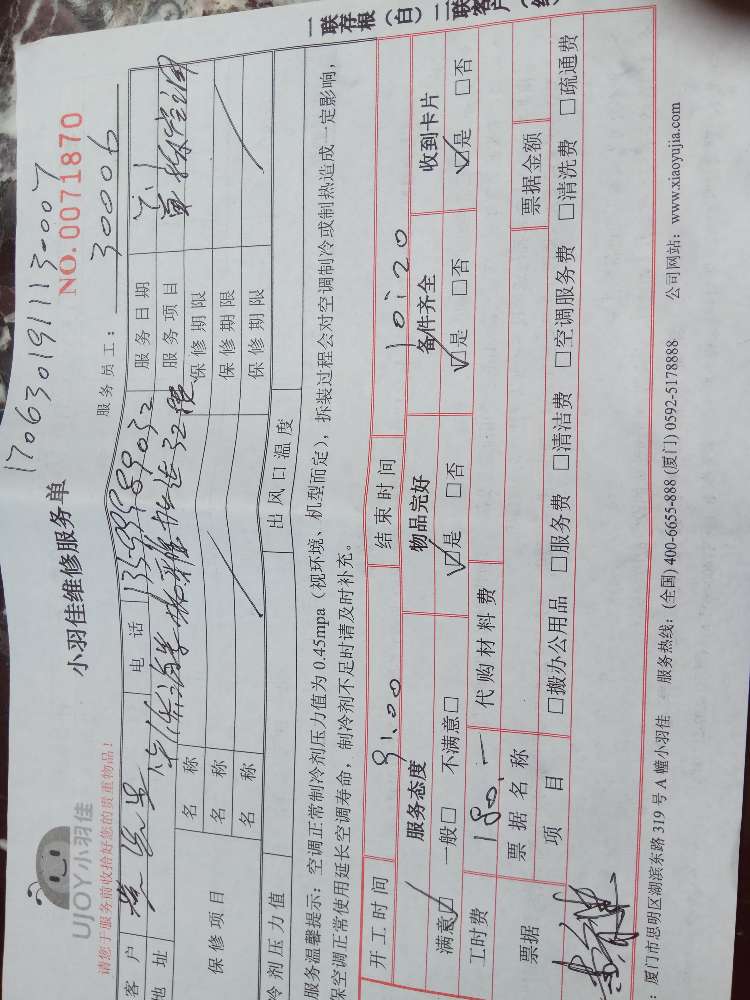 170630191113-007
UJOY小羽佳
小羽佳维修服务单
NO.0071870
请您于服务前收拾好您的贵重物品！
服务员工：30006
客户 电话 服务日期
地址 服务项目
保修项目 名称 保修期限
名称 保修期限
名称 保修期限
冷剂压力值 出风口温度
服务温馨提示：空调正常制冷剂压力值为0.45mpa（视环境、机型而定），拆装过程会对空调制冷或制热造成一定影响，
保空调正常使用延长空调寿命，制冷剂不足时请及时补充。
开工时间 9:00 结束时间 10:20
服务态度 物品完好 备件齐全 收到卡片
满意☑ 一般□ 不满意□ ☑是 □否 ☑是 □否 ☑是 □否
工时费 180.- 代购材料费
票据 票据名称 票据金额
项目 □搬办公用品 □服务费 □清洁费 □空调服务费 □清洗费 □疏通费
：厦门市思明区湖滨东路319号A幢小羽佳 服务热线：(全国) 400-6655-888 (厦门) 0592-5178888 公司网站：www.xiaoyujia.com
一联存根（白） 二联客户（